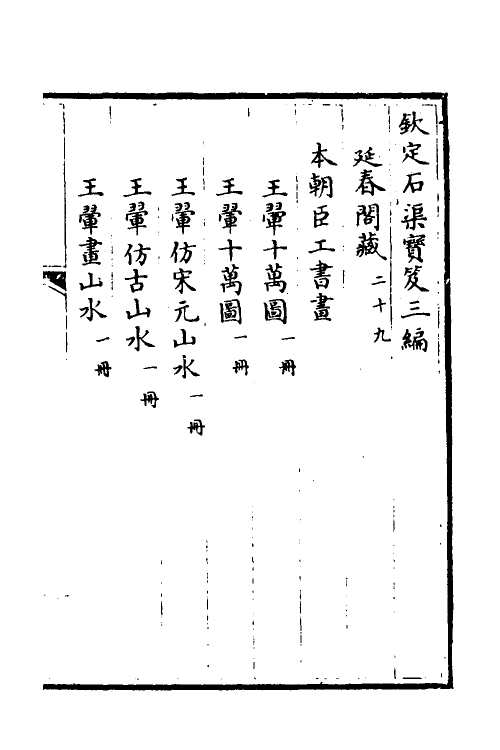 欽定石渠寶笈三編
延春閣藏二十九
本朝臣工書畫
王翬十萬圖一冊
王翬十萬圖一冊
王翬仿宋元山水一冊
王翬仿古山水一冊
王翬畫山水一冊